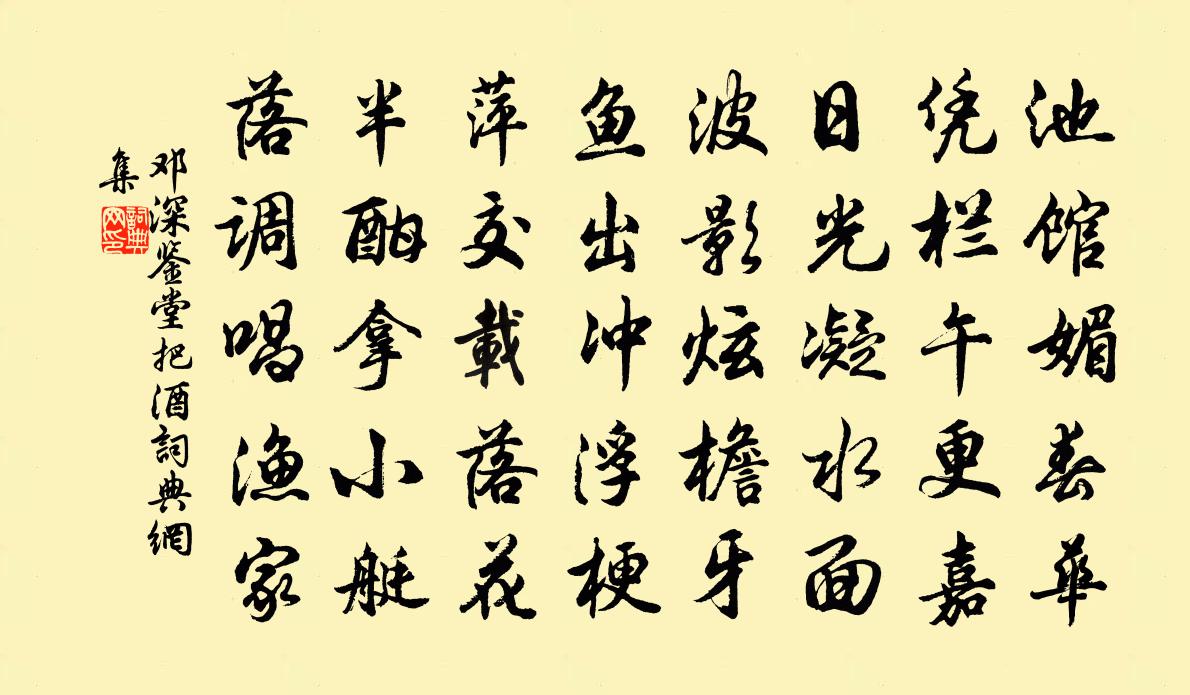 池馆媚春华
凭栏午更嘉
日光凝水面
波影炫檐牙
鱼出冲浮梗
萍交載落花
半酣拿小艇
落调唱渔家
邓深鉴堂把酒詞典網
集
詞典
网印